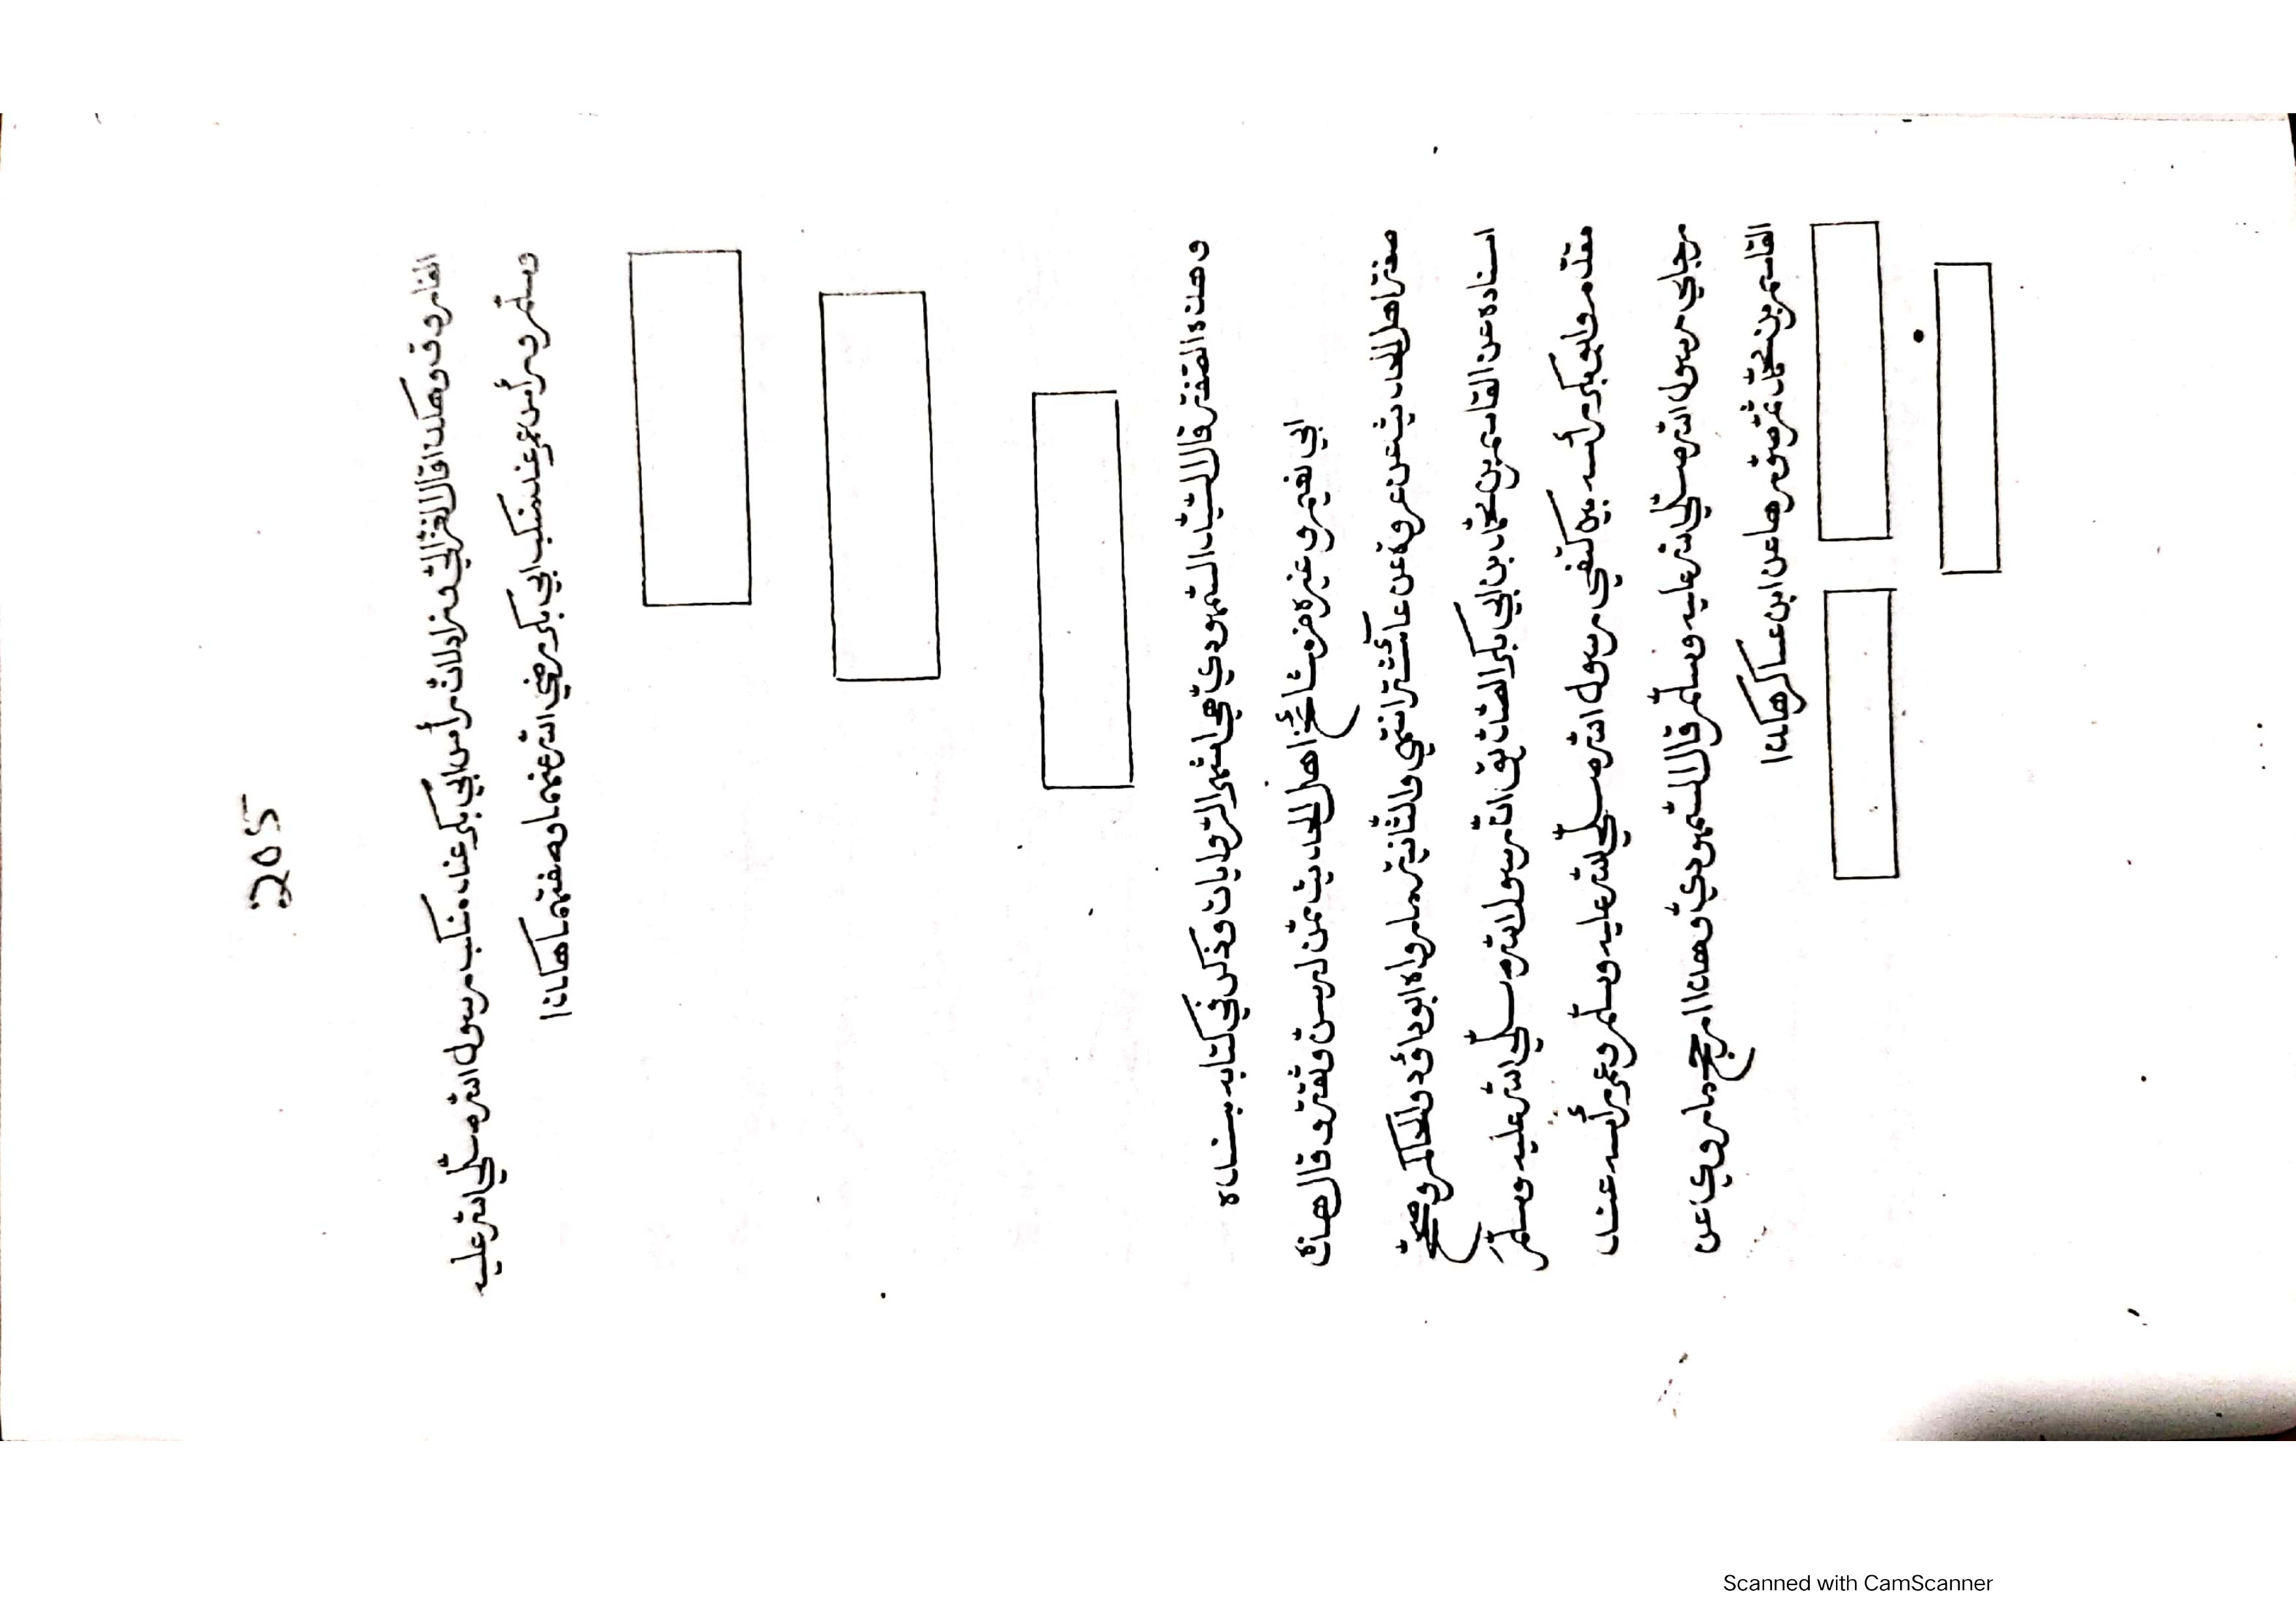 205
الفاروق وهكذا قال الغزاليّ وزاد لانّ رأس ابي بكر عند منكب رسول الله صلّي الله عليه
وسلّم ورأس عمر عند منكب ابي بكر رضي الله عنهما وصفتهما هكذا
وهذه الصّفة قال السّيّد السّمهوديّ هي اشهر الرّوايات وذكر في كتابه بسنده
ابي نعيم وغيره من مشائخ اهل الحديث ممّن له سنّ وثقة وقال هذه
صفة اهل الحديث عن عروة عن عآئشة انتهي والثّانية ما رواه ابوداؤد والحاكم وصحّح
اسناده عن القاسم بن محمّد بن ابي بكر الصّدّيق انّ رسول الله صلّي الله عليه وسلّم
مقدم وابو بكر رأسه بين كتفي رسول الله صلّي الله عليه وسلّم وعمر رأسه عند
رجلي رسول الله صلّي الله عليه وسلّم قال السّمهوديّ وهذا ارجح ما روي عن
القاسم بن محمّد ثمّ صوّرها عن ابن عساكر هكذا
Scanned with CamScanner